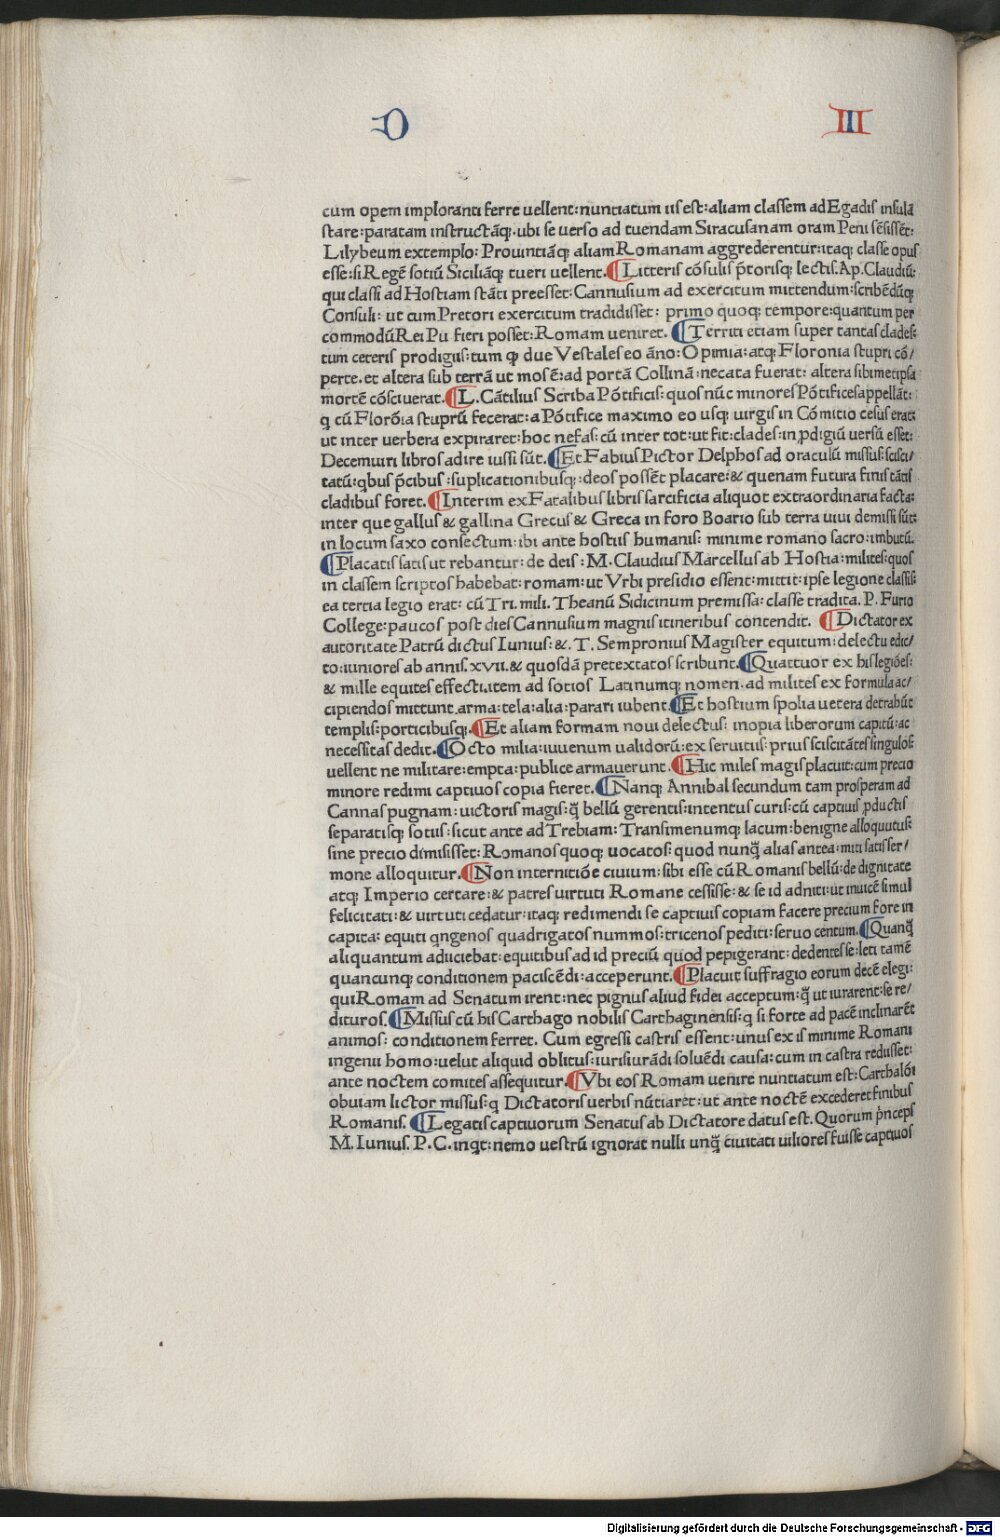 D III
cum opem imploranti ferre uellent: nunciatum iis est: aliam classem ad Egadis insulā
stare: paratam instructāq;. ubi se uerso ad tuendam Siracusanam oram Peni sēsissēt:
Lilybeum extemplo: Prouintiāq; aliam Romanam aggrederentur: itaq; classe opus
esse: si Regē sotiū Siciliāq; tueri uellent. ¶Litteris cōsulis p̄torisq; lectis. Ap. Claudiū:
qui classi ad Hostiam stāti preesset: Cannusium ad exercitum mittendum: scribēdūq;
Consuli: ut cum Pretori exercitum tradidisset: primo quoq; tempore: quantum per
commodū Rei Pu fieri posset: Romam ueniret. ¶Territi etiam super tantas clades:
tum ceteris prodigiis: tum ꝙ due Vestales eo āno: Opimia: atq; Floronia stupri cō/
perte. et altera sub terrā ut mos ē: ad portā Collinā: necata fuerat: altera sibimetipsa
mortē cōsciuerat. ¶L. Cātilius Scriba Pōtificis: quos nūc minores Pōtifices appellāt:
q cū Florōia stuprū fecerat: a Pōtifice maximo eo usq; uirgis in Cōmitio cesus erat:
ut inter uerbera expiraret: hoc nefas: cū inter tot: ut fit: clades: in ꝓdigiū uersū esset:
Decemuiri libros adire iussi sūt. ¶Et Fabius Pictor Delphos ad oraculū missus: scisci/
tatū: qbus p̄cibus: suplicationibusq;: deos possēt placare: & quenam futura finis tātis
cladibus foret. ¶Interim ex Fatalibus libris sarcificia aliquot extraordinaria facta:
inter que gallus & gallina Grecus & Greca in foro Boario sub terra uiui demissi sūt:
in locum saxo consectum: ibi ante hostiis humanis: minime romano sacro: imbutū.
¶Placatis satis ut rebantur: de deis: M. Claudius Marcellus ab Hostia: milites: quos
in classem scriptos habebat: romam: ut Vrbi presidio essent: mittit: ipse legione classis:
ea tertia legio erat: cū Tri. mili. Theanū Sidicinum premissa: classe tradita. P. Furio
College: paucos post dies Cannusium magnis itineribus contendit. ¶Dictator ex
autoritate Patrū dictus Iunius: &. T. Sempronius Magister equitum: delectu edic/
to: iuniores ab annis. xvii. & quosdā pretextatos scribunt. ¶Quattuor ex his legiões:
& mille equites effecti. item ad sotios Latinumq; nomen. ad milites ex formula ac/
cipiendos mittunt. arma: tela: alia: parari iubent. ¶Et hostium spolia uetera detrahūt
templis: porticibusq;. ¶Et aliam formam noui delectus: inopia liberorum capitū: ac
necessitas dedit. ¶Octo milia: iuuenum ualidorū: ex seruitus: prius sciscitātes singulos:
uellent ne militare: empta: publice armauerunt. ¶Hic miles magis placuit: cum precio
minore redimi captiuos copia fieret. ¶Nanq; Annibal secundum tam prosperam ad
Cannas pugnam: uictoris magis: q̄ bellū gerentis: intentus curis: cū captiuis ꝓductis
separatisq; sotiis: sicut ante ad Trebiam: Transimenumq; lacum: benigne alloquutus:
sine precio dimisisset: Romanos quoq; uocatos: quod nunq̄ alias antea: miti satis ser/
mone alloquitur. ¶Non internitiōe ciuium: sibi esse cū Romanis bellū: de dignitate
atq; Imperio certare: & patres uirtuti Romane cessisse: & se id adniti: ut inuicē simul
felicitati: & uirtuti cedatur: itaq; redimendi se captiuis copiam facere precium fore in
capita: equiti qngenos quadrigatos nummos: tricenos pediti: seruo centum. ¶Quanq̄
aliquantum adiiciebat: equitibus ad id preciū quod pepigerant: dedentes se: leti tamē
quancunq; conditionem paciscēdi: acceperunt. ¶Placuit suffragio eorum decē elegi:
qui Romam ad Senatum irent: nec pignus aliud fidei acceptum: q̄ ut iurarent: se re/
dituros. ¶Missus cū his Carthago nobilis Carthaginensis: q si forte ad pacē inclinarēt
animos: conditionem ferret. Cum egressi castris essent: unus ex is minime Romani
ingenii homo: uelut aliquid oblitus: iurisiurādi soluēdi causa: cum in castra redisset:
ante noctem comites assequitur. ¶Vbi eos Romam uenire nuntiatum est: Carthalōi
obuiam lictor missus: q Dictatoris uerbis nūtiaret: ut ante noctē excederet finibus
Romanis. ¶Legatis captiuorum Senatus ab Dictatore datus est. Quorum p̄nceps
M. Iunius. P. C. inqt: nemo uestrū ignorat nulli unq̄ ciuitati uiliores fuisse captiuos
Digitalisierung gefördert durch die Deutsche Forschungsgemeinschaft - DFG